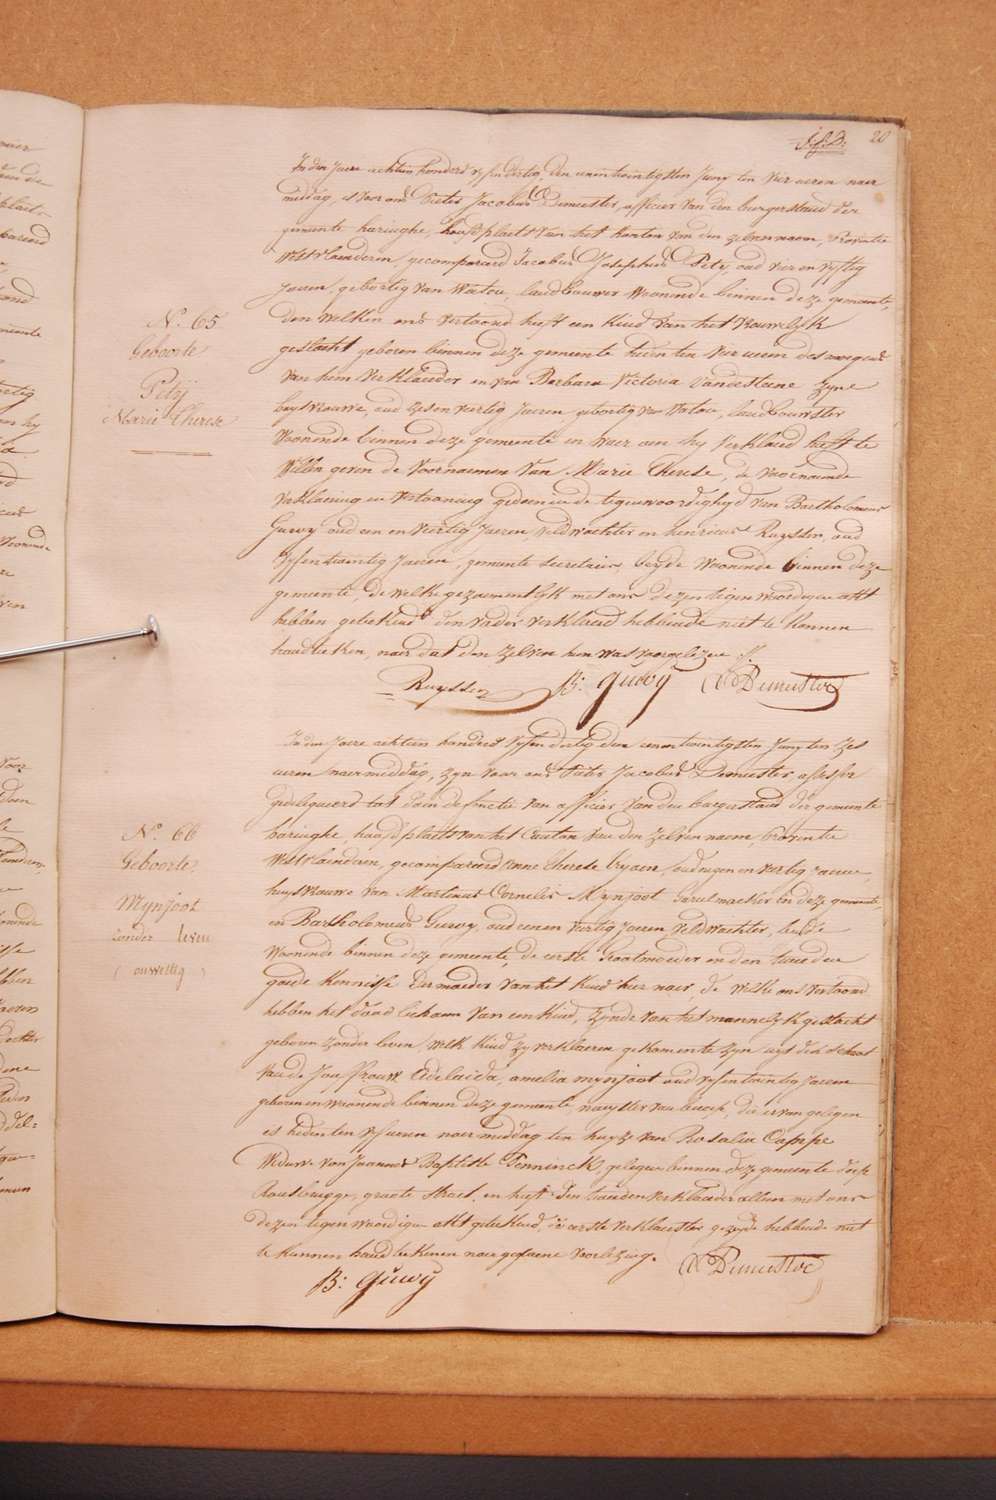 20
In den Jaere achtien honderd vyfendertig, den eenentwintigsten Juny ten vier ueren naer
middag, voor ons Pieter Jacobus Demeester, officier van den burgerstand der
gemeente haringhe, hoofdplaets van het kanton van den zelven naem, Provintie
Westvlaenderen, gecompareerd Jacobus Josephus Petij, oud vier en vyftig
Jaeren, gebortig van Watou, landbouwer Woonende binnen deze gemeente,
den welken ons vertoond heeft een Kind van het Vrouwelyk
geslacht geboren binnen deze gemeente heden ten vier ueren des morgens
van hem Verklaerder en van Barbara Victoria Vandesteene zyne
huysvrouwe, oud zesen veertig Jaeren gebortig van Watou, landbouwster
Woonende binnen deze gemeente en waer aen hy verklaerd heeft te
Willen geven de Voornaemen van Marie Therese, de voornoemde
verklaering en vertooning gedaen in de tegenwoordigheyd van Bartholomeus
Guwy oud een en veertig Jaeren veldwachter en henricus Ruyssen, oud
vyfentwintig Jaeren, gemeente secretaris, beyde Woonende binnen deze
gemeente, de welke gezaementlyk met ons dezen tegenwoordigen akt
hebben geteekend den vader verklaerd hebbende niet te konnen
handteeken, naer dat den zelven hem was voorgelezen
Ruyssen B: Guwy Demeester
N.º 65
Geboorte
Petij
Marie Therese
In den Jaere achtien honderd vyfen dertig den eenentwintigsten Juny ten zes
ueren naermiddag, zyn voor ons Pieter Jacobus Demeester,
gedelegueerd tot de functie van officier van den burgerstand der gemeente
haringhe, hoofdplaets van het Canton van den zelven naem, Provintie
Westvlaenderen, gecompareerd Anne Therese oud negen en veertig Jaeren
huysvrouwe van Martinus Cornelis Mynjoot Zaeelmaeker in deze gemeente,
en Bartholomeus Guwy, oud eenen veertig Jaeren Veldwachter, beyde
Woonende binnen deze gemeente, de eerste Grootmoeder en den tweeden
goede kennisse der moeder van het Kind hier naer, de welke ons vertoond
hebben het dood lichaem van een Kind, zynde van het mannelyk geslacht
geboren zonder leven, welk Kind zy verklaeren gekomen te zyn uyt den schoot
van de Jou Vrouw Adelaida, amelia mynjoot oud vyfentwintig Jaeren
geboren en woonende binnen deze gemeente, naeyster van beroep, die ervan gelegen
is heden ten vyf ueren naermiddag ten huyze van Rosalia Cappe
Weduwe van Joannes Baptiste Fenninck, gelegen binnen deze gemeente dorp
Rousbrugge, groote straet, en heeft den tweeden verklaerder alleen met ons
dezen tegenwoordigen akt geteekend de eerste verklaerster gezegd hebbende niet
te kunnen handteekenen naer gedaene voorlezing.
B: Guwy Demeester
N.º 66
Geboorte
Mynjoot
zonder leven
(onwettig)